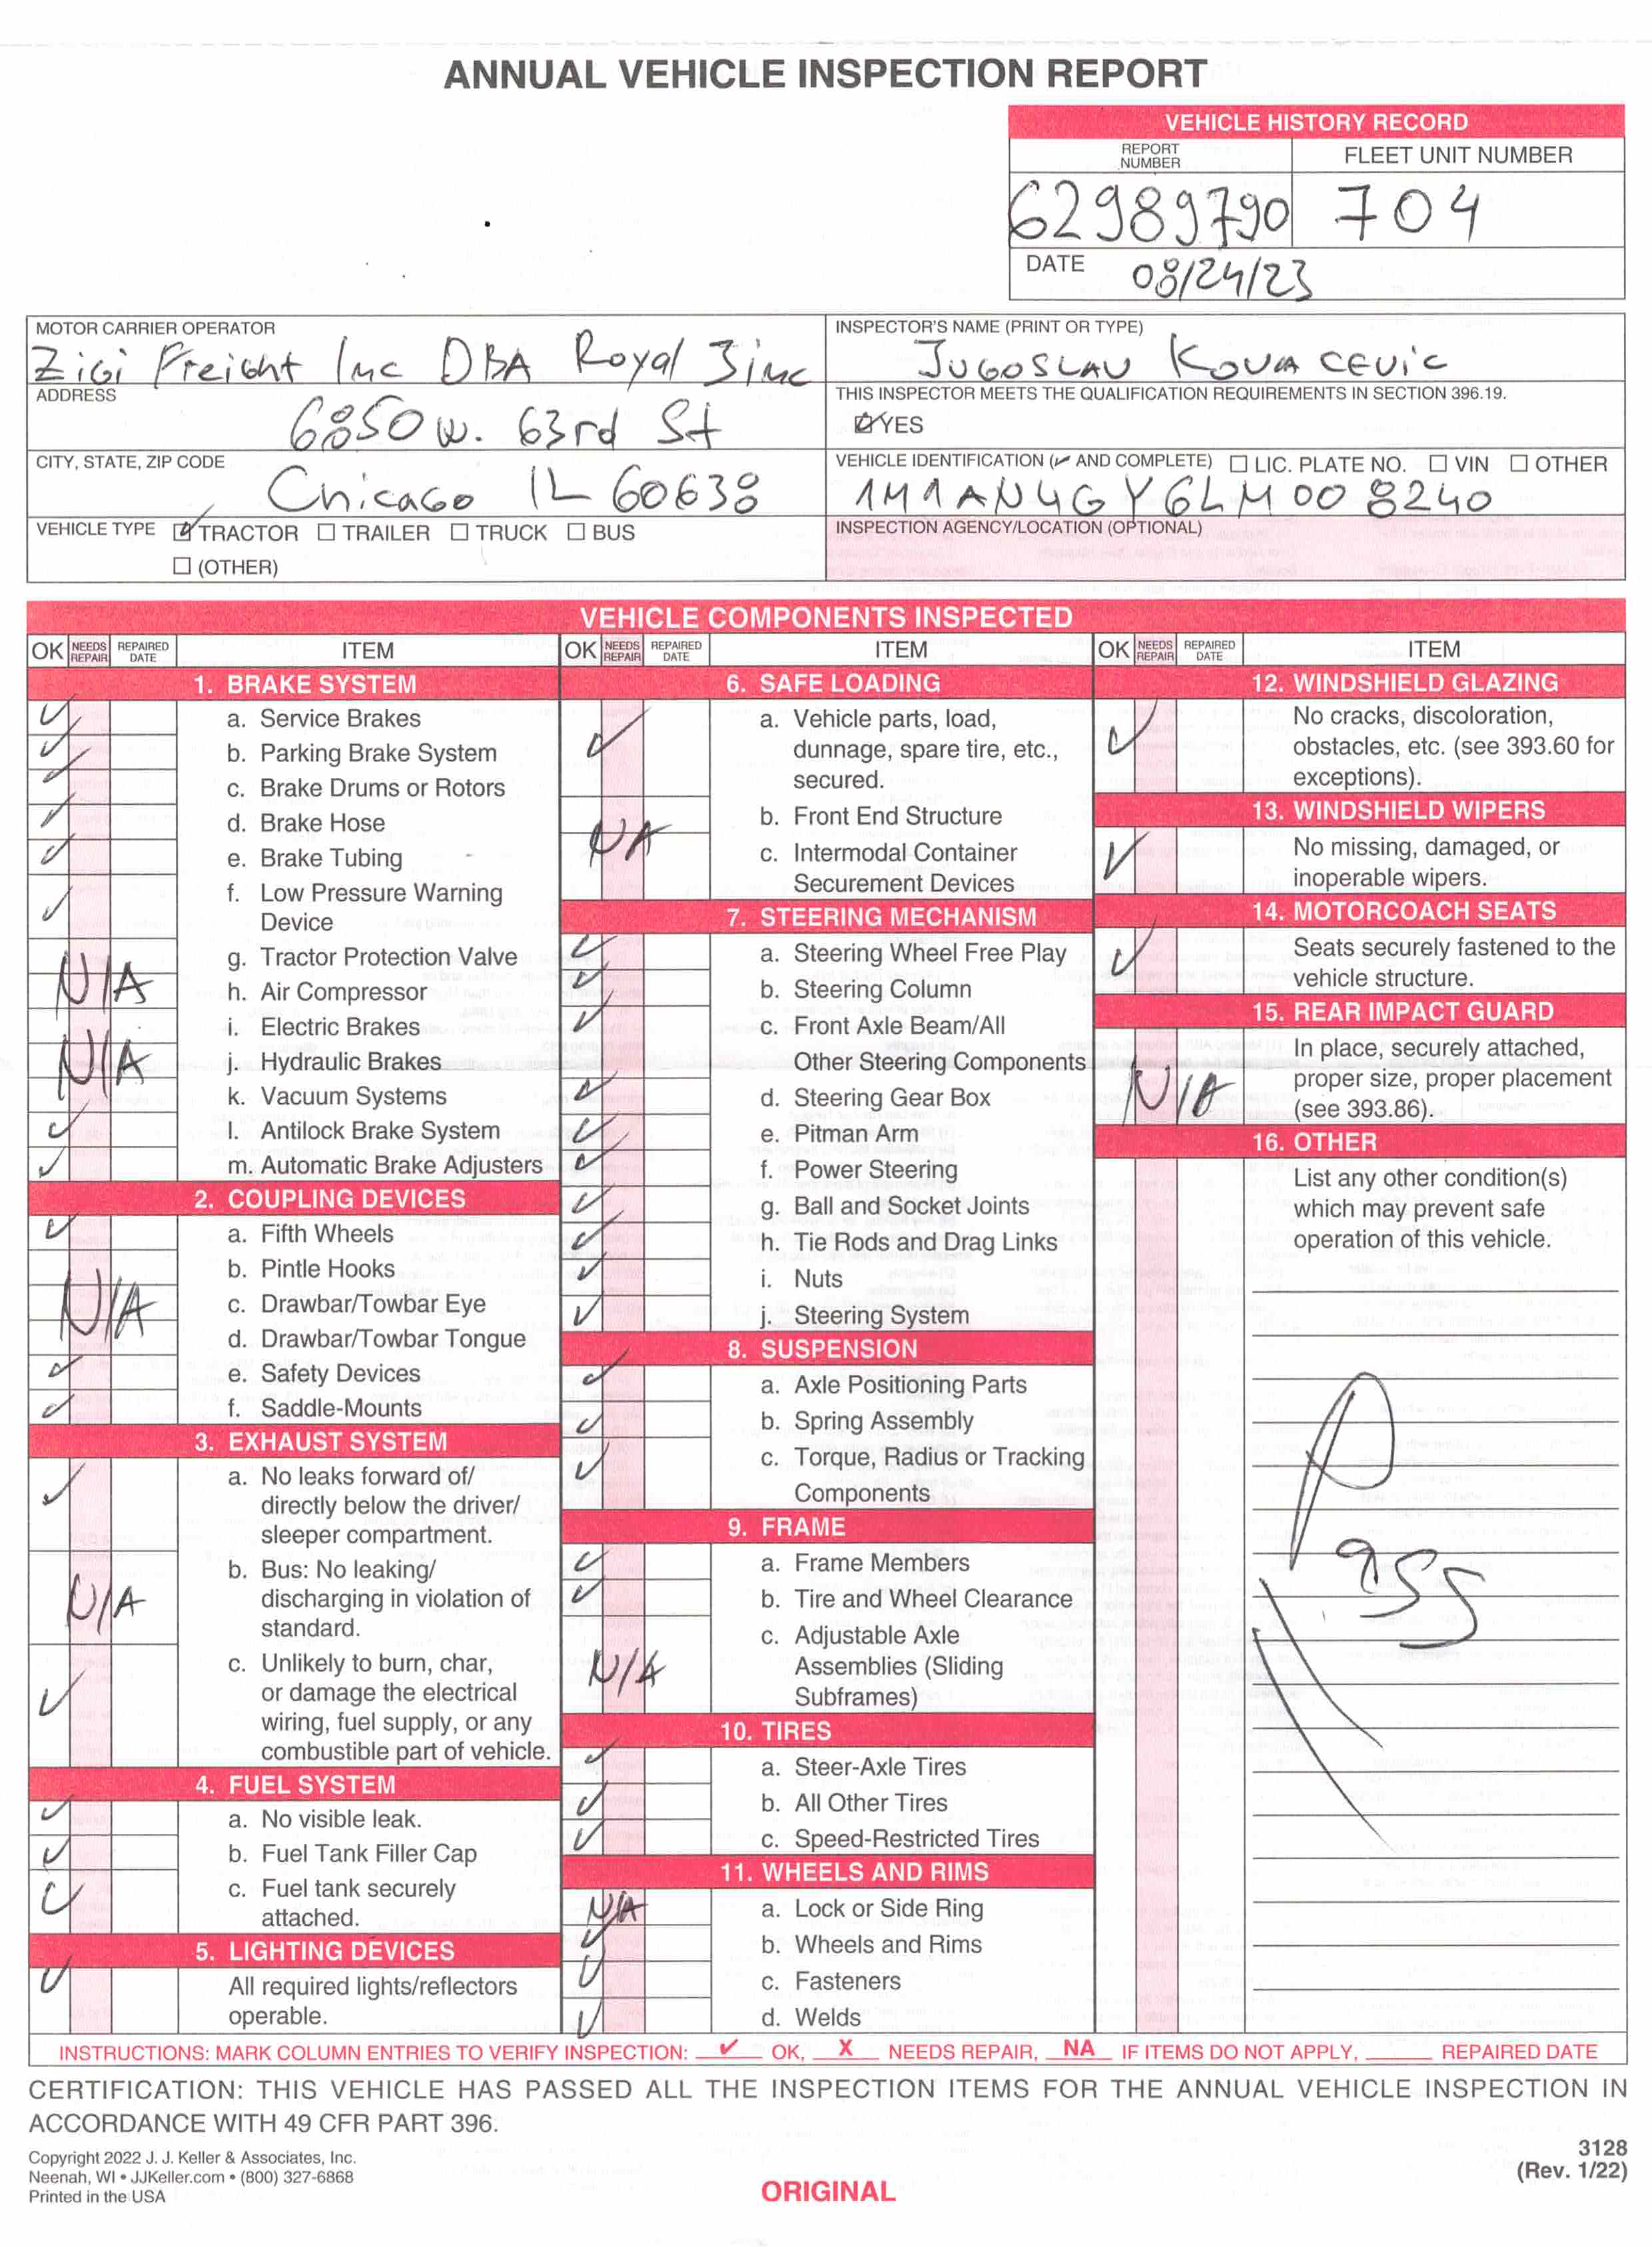 ANNUAL VEHICLE INSPECTION REPORT
VEHICLE HISTORY RECORD
REPORT NUMBER
FLEET UNIT NUMBER
62989790
704
DATE 08/24/23
MOTOR CARRIER OPERATOR
Zigi Freight Inc DBA Royal 3inc
INSPECTOR'S NAME (PRINT OR TYPE)
JUGOSLAV KOVACEVIC
ADDRESS
6850 w. 63rd St
THIS INSPECTOR MEETS THE QUALIFICATION REQUIREMENTS IN SECTION 396.19.
YES
CITY, STATE, ZIP CODE
Chicago IL 60638
VEHICLE IDENTIFICATION (✓ AND COMPLETE) ☐ LIC. PLATE NO. ☐ VIN ☐ OTHER
1M1AN4GY6LM008240
VEHICLE TYPE ☑ TRACTOR ☐ TRAILER ☐ TRUCK ☐ BUS
☐ (OTHER)
INSPECTION AGENCY/LOCATION (OPTIONAL)
VEHICLE COMPONENTS INSPECTED
OK NEEDS REPAIR REPAIRED DATE ITEM
1. BRAKE SYSTEM
✓ a. Service Brakes
✓ b. Parking Brake System
✓ c. Brake Drums or Rotors
✓ d. Brake Hose
✓ e. Brake Tubing
✓ f. Low Pressure Warning
Device
g. Tractor Protection Valve
N/A h. Air Compressor
i. Electric Brakes
N/A j. Hydraulic Brakes
k. Vacuum Systems
✓ l. Antilock Brake System
✓ m. Automatic Brake Adjusters
2. COUPLING DEVICES
✓ a. Fifth Wheels
b. Pintle Hooks
N/A c. Drawbar/Towbar Eye
d. Drawbar/Towbar Tongue
✓ e. Safety Devices
✓ f. Saddle-Mounts
3. EXHAUST SYSTEM
✓ a. No leaks forward of/
directly below the driver/
sleeper compartment.
N/A b. Bus: No leaking/
discharging in violation of
standard.
✓ c. Unlikely to burn, char,
or damage the electrical
wiring, fuel supply, or any
combustible part of vehicle.
4. FUEL SYSTEM
✓ a. No visible leak.
✓ b. Fuel Tank Filler Cap
✓ c. Fuel tank securely
attached.
5. LIGHTING DEVICES
✓ All required lights/reflectors
operable.
OK NEEDS REPAIR REPAIRED DATE ITEM
6. SAFE LOADING
✓ a. Vehicle parts, load,
dunnage, spare tire, etc.,
secured.
b. Front End Structure
N/A c. Intermodal Container
Securement Devices
7. STEERING MECHANISM
✓ a. Steering Wheel Free Play
✓ b. Steering Column
✓ c. Front Axle Beam/All
Other Steering Components
✓ d. Steering Gear Box
✓ e. Pitman Arm
✓ f. Power Steering
✓ g. Ball and Socket Joints
✓ h. Tie Rods and Drag Links
✓ i. Nuts
✓ j. Steering System
8. SUSPENSION
✓ a. Axle Positioning Parts
✓ b. Spring Assembly
✓ c. Torque, Radius or Tracking
Components
9. FRAME
✓ a. Frame Members
✓ b. Tire and Wheel Clearance
N/A c. Adjustable Axle
Assemblies (Sliding
Subframes)
10. TIRES
✓ a. Steer-Axle Tires
✓ b. All Other Tires
✓ c. Speed-Restricted Tires
11. WHEELS AND RIMS
N/A a. Lock or Side Ring
✓ b. Wheels and Rims
✓ c. Fasteners
✓ d. Welds
OK NEEDS REPAIR REPAIRED DATE ITEM
12. WINDSHIELD GLAZING
✓ No cracks, discoloration,
obstacles, etc. (see 393.60 for
exceptions).
13. WINDSHIELD WIPERS
✓ No missing, damaged, or
inoperable wipers.
14. MOTORCOACH SEATS
✓ Seats securely fastened to the
vehicle structure.
15. REAR IMPACT GUARD
N/A In place, securely attached,
proper size, proper placement
(see 393.86).
16. OTHER
List any other condition(s)
which may prevent safe
operation of this vehicle.
Pass
INSTRUCTIONS: MARK COLUMN ENTRIES TO VERIFY INSPECTION: ✓ OK, X NEEDS REPAIR, NA IF ITEMS DO NOT APPLY, ____ REPAIRED DATE
CERTIFICATION: THIS VEHICLE HAS PASSED ALL THE INSPECTION ITEMS FOR THE ANNUAL VEHICLE INSPECTION IN
ACCORDANCE WITH 49 CFR PART 396.
Copyright 2022 J. J. Keller & Associates, Inc.
Neenah, WI • JJKeller.com • (800) 327-6868
Printed in the USA
ORIGINAL
3128
(Rev. 1/22)